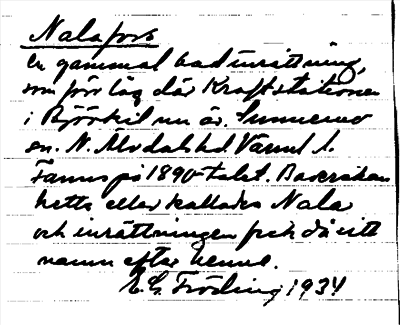 Nalafors
en gammal badinrättning,
som förr låg där Kraftstationen
i Björkil nu är. Sunnemo
sn. N. Älvdals hd. Värml. l.
Fanns på 1890-talet. Baderskan
hette eller kallades Nala
och inrättningen fick då sitt
namn efter henne.
E. G. Fröding 1934